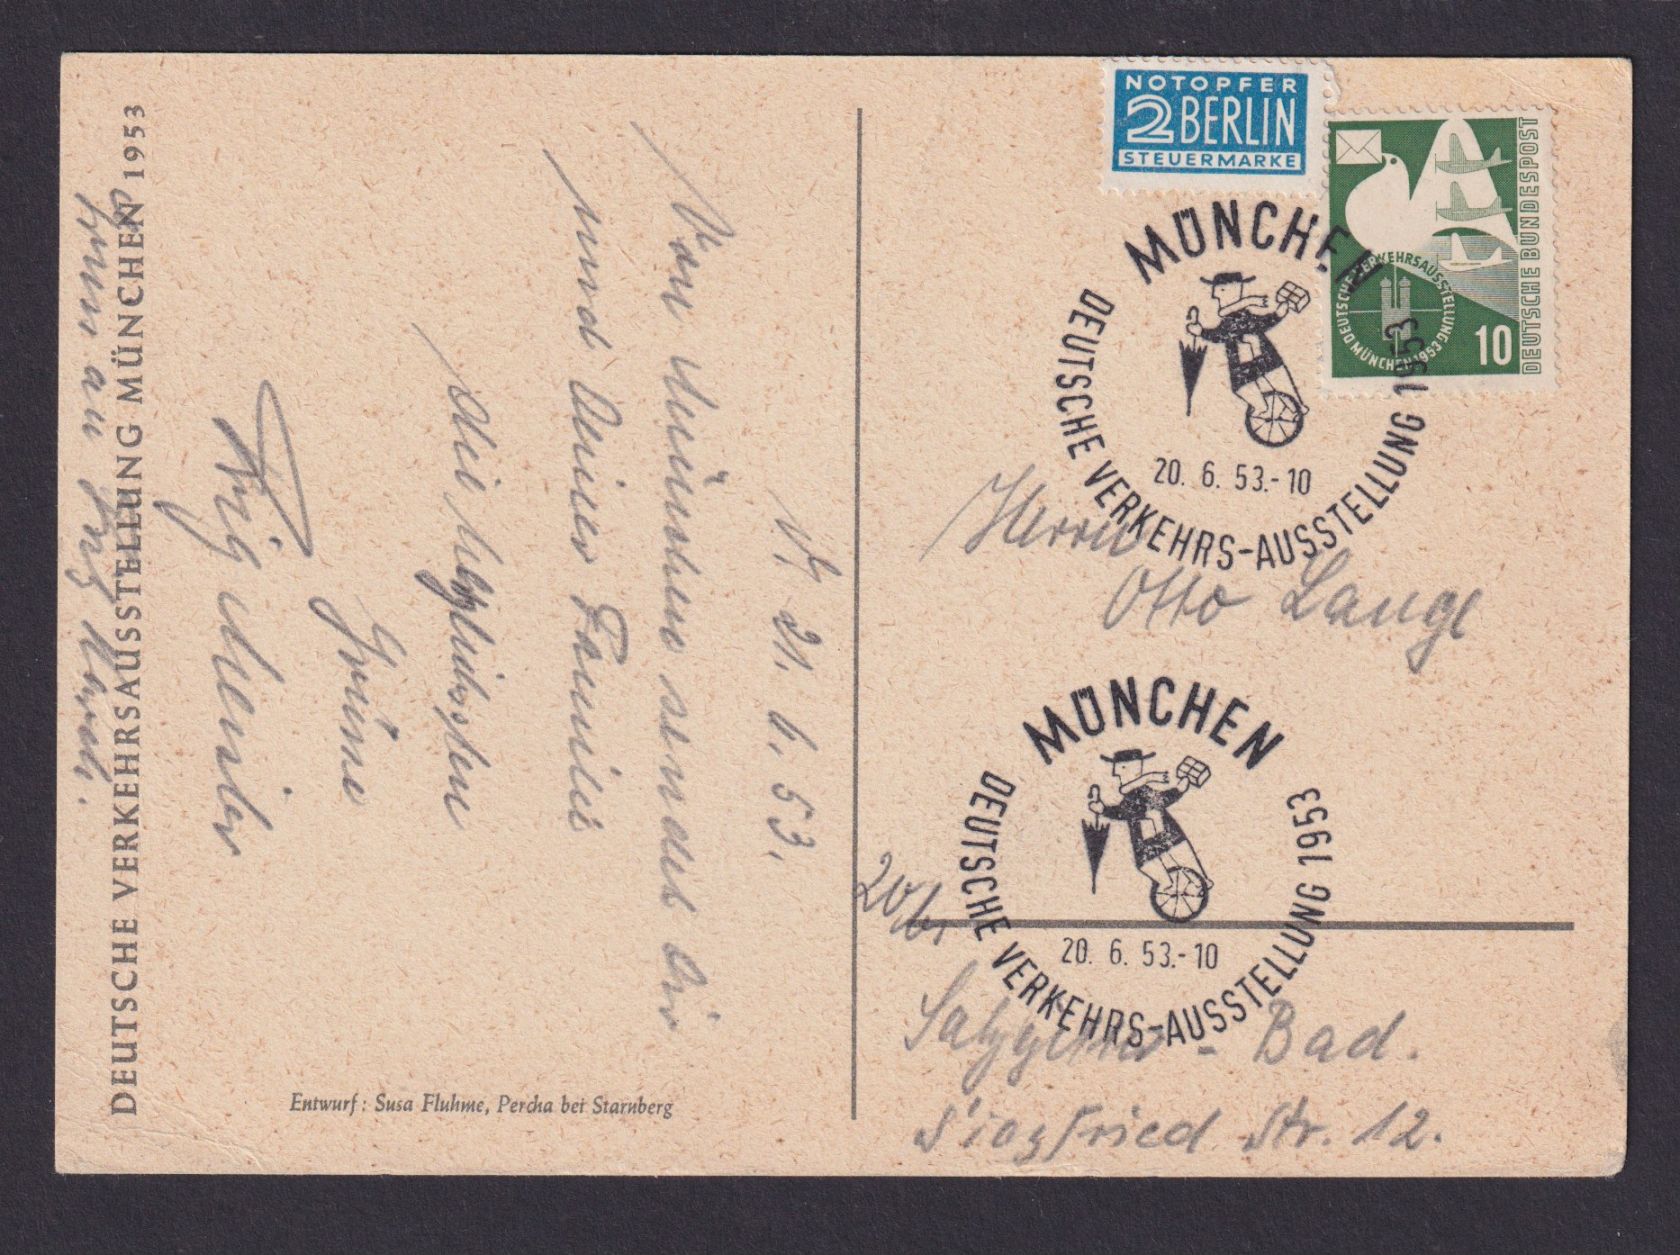 DEUTSCHE VERKEHRSAUSSTELLUNG MÜNCHEN 1953
21. 6. 53.
Von München sendet Dir
und Deiner Familie
die herzlichsten
Grüße
Entwurf: Susa Fluhme, Percha bei Starnberg
NOTOPFER
2 BERLIN
STEUERMARKE
DEUTSCHE BUNDESPOST
DEUTSCHE VERKEHRSAUSSTELLUNG MÜNCHEN 1953
10
MÜNCHEN
20. 6. 53.-10
DEUTSCHE VERKEHRS-AUSSTELLUNG 1953
Herrn
Otto Lange
MÜNCHEN
20. 6. 53.-10
DEUTSCHE VERKEHRS-AUSSTELLUNG 1953
20b,
Salzgitter - Bad.
Siegfried Str. 12.